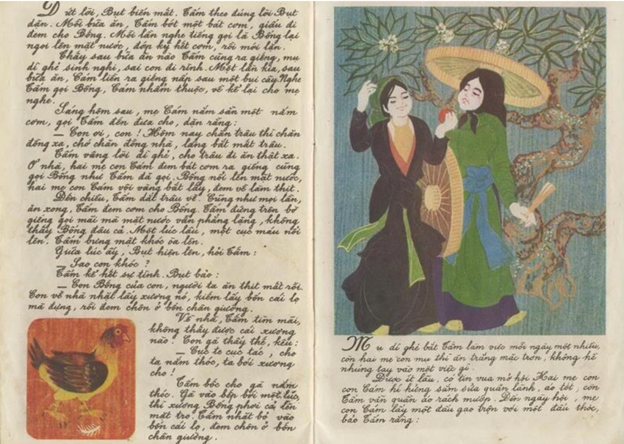 Dứt lời, Bụt biến mất. Tấm theo đúng lời Bụt
dặn. Mỗi bữa ăn, Tấm bớt một bát cơm, giấu đi
đem cho Bống. Mỗi lần nghe tiếng gọi là Bống lại
ngoi lên mặt nước, đớp kỳ hết cơm, rồi mới lặn.
Thấy sau bữa ăn nào Tấm cũng ra giếng, mụ
dì ghẻ sinh nghi, sai con đi rình. Một lần kia, sau
bữa ăn, Cám liền ra giếng nấp sau một bụi cây. Nghe
Tấm gọi Bống, Cám nhẩm thuộc, về kể lại cho mẹ
nghe.
Sáng hôm sau, mẹ Cám nắm sẵn một nắm
cơm, gọi Tấm đến đưa cho, dặn rằng:
— Con ơi, con! Hôm nay chăn trâu thì chăn
đồng xa, chớ chăn đồng nhà, làng bắt mất trâu.
Tấm vâng lời dì ghẻ, cho trâu đi ăn thật xa.
Ở nhà, hai mẹ con Cám đem bát cơm ra giếng, cũng
gọi Bống như Tấm đã gọi. Bống nổi lên mặt nước,
hai mẹ con Cám vội vàng bắt lấy, đem về làm thịt.
Đến chiều, Tấm dắt trâu về. Cũng như mọi lần,
ăn xong, Tấm đem cơm cho Bống. Tấm đứng trên bờ
giếng gọi mãi mà mặt nước vẫn phẳng lặng, không
thấy Bống đâu cả. Một lúc lâu, một cục máu nổi
lên. Tấm bưng mặt khóc òa lên.
Giữa lúc ấy, Bụt hiện lên, hỏi Tấm:
— Sao con khóc?
Tấm kể hết sự tình. Bụt bảo:
— Con Bống của con, người ta ăn thịt mất rồi.
Con về nhà nhặt lấy xương nó, kiếm lấy bốn cái lọ
mà đựng, rồi đem chôn ở bốn chân giường.
Về nhà, Tấm tìm mãi,
không thấy được cái xương
nào. Con gà thấy thế, kêu:
— Cục te cục tác, cho
ta nắm thóc, ta bới xương
cho!
Tấm bốc cho gà nắm
thóc. Gà vào bếp bới một lúc
thì xương Bống phơi cả lên
mặt tro. Tấm nhặt bỏ vào
bốn cái lọ, đem chôn ở bốn
chân giường.
Mụ dì ghẻ bắt Tấm làm việc mỗi ngày một nhiều,
còn hai mẹ con mụ thì ăn trắng mặc trơn, không hề
nhúng tay vào một việc gì.
Được ít lâu, có tin vua mở hội. Hai mẹ con
con Cám hí hửng sắm sửa quần lành, áo tốt, còn
Tấm vẫn quần áo rách mướp. Đến ngày hội, mẹ
con Cám lấy một đấu gạo trộn với một đấu thóc,
bảo Tấm rằng: